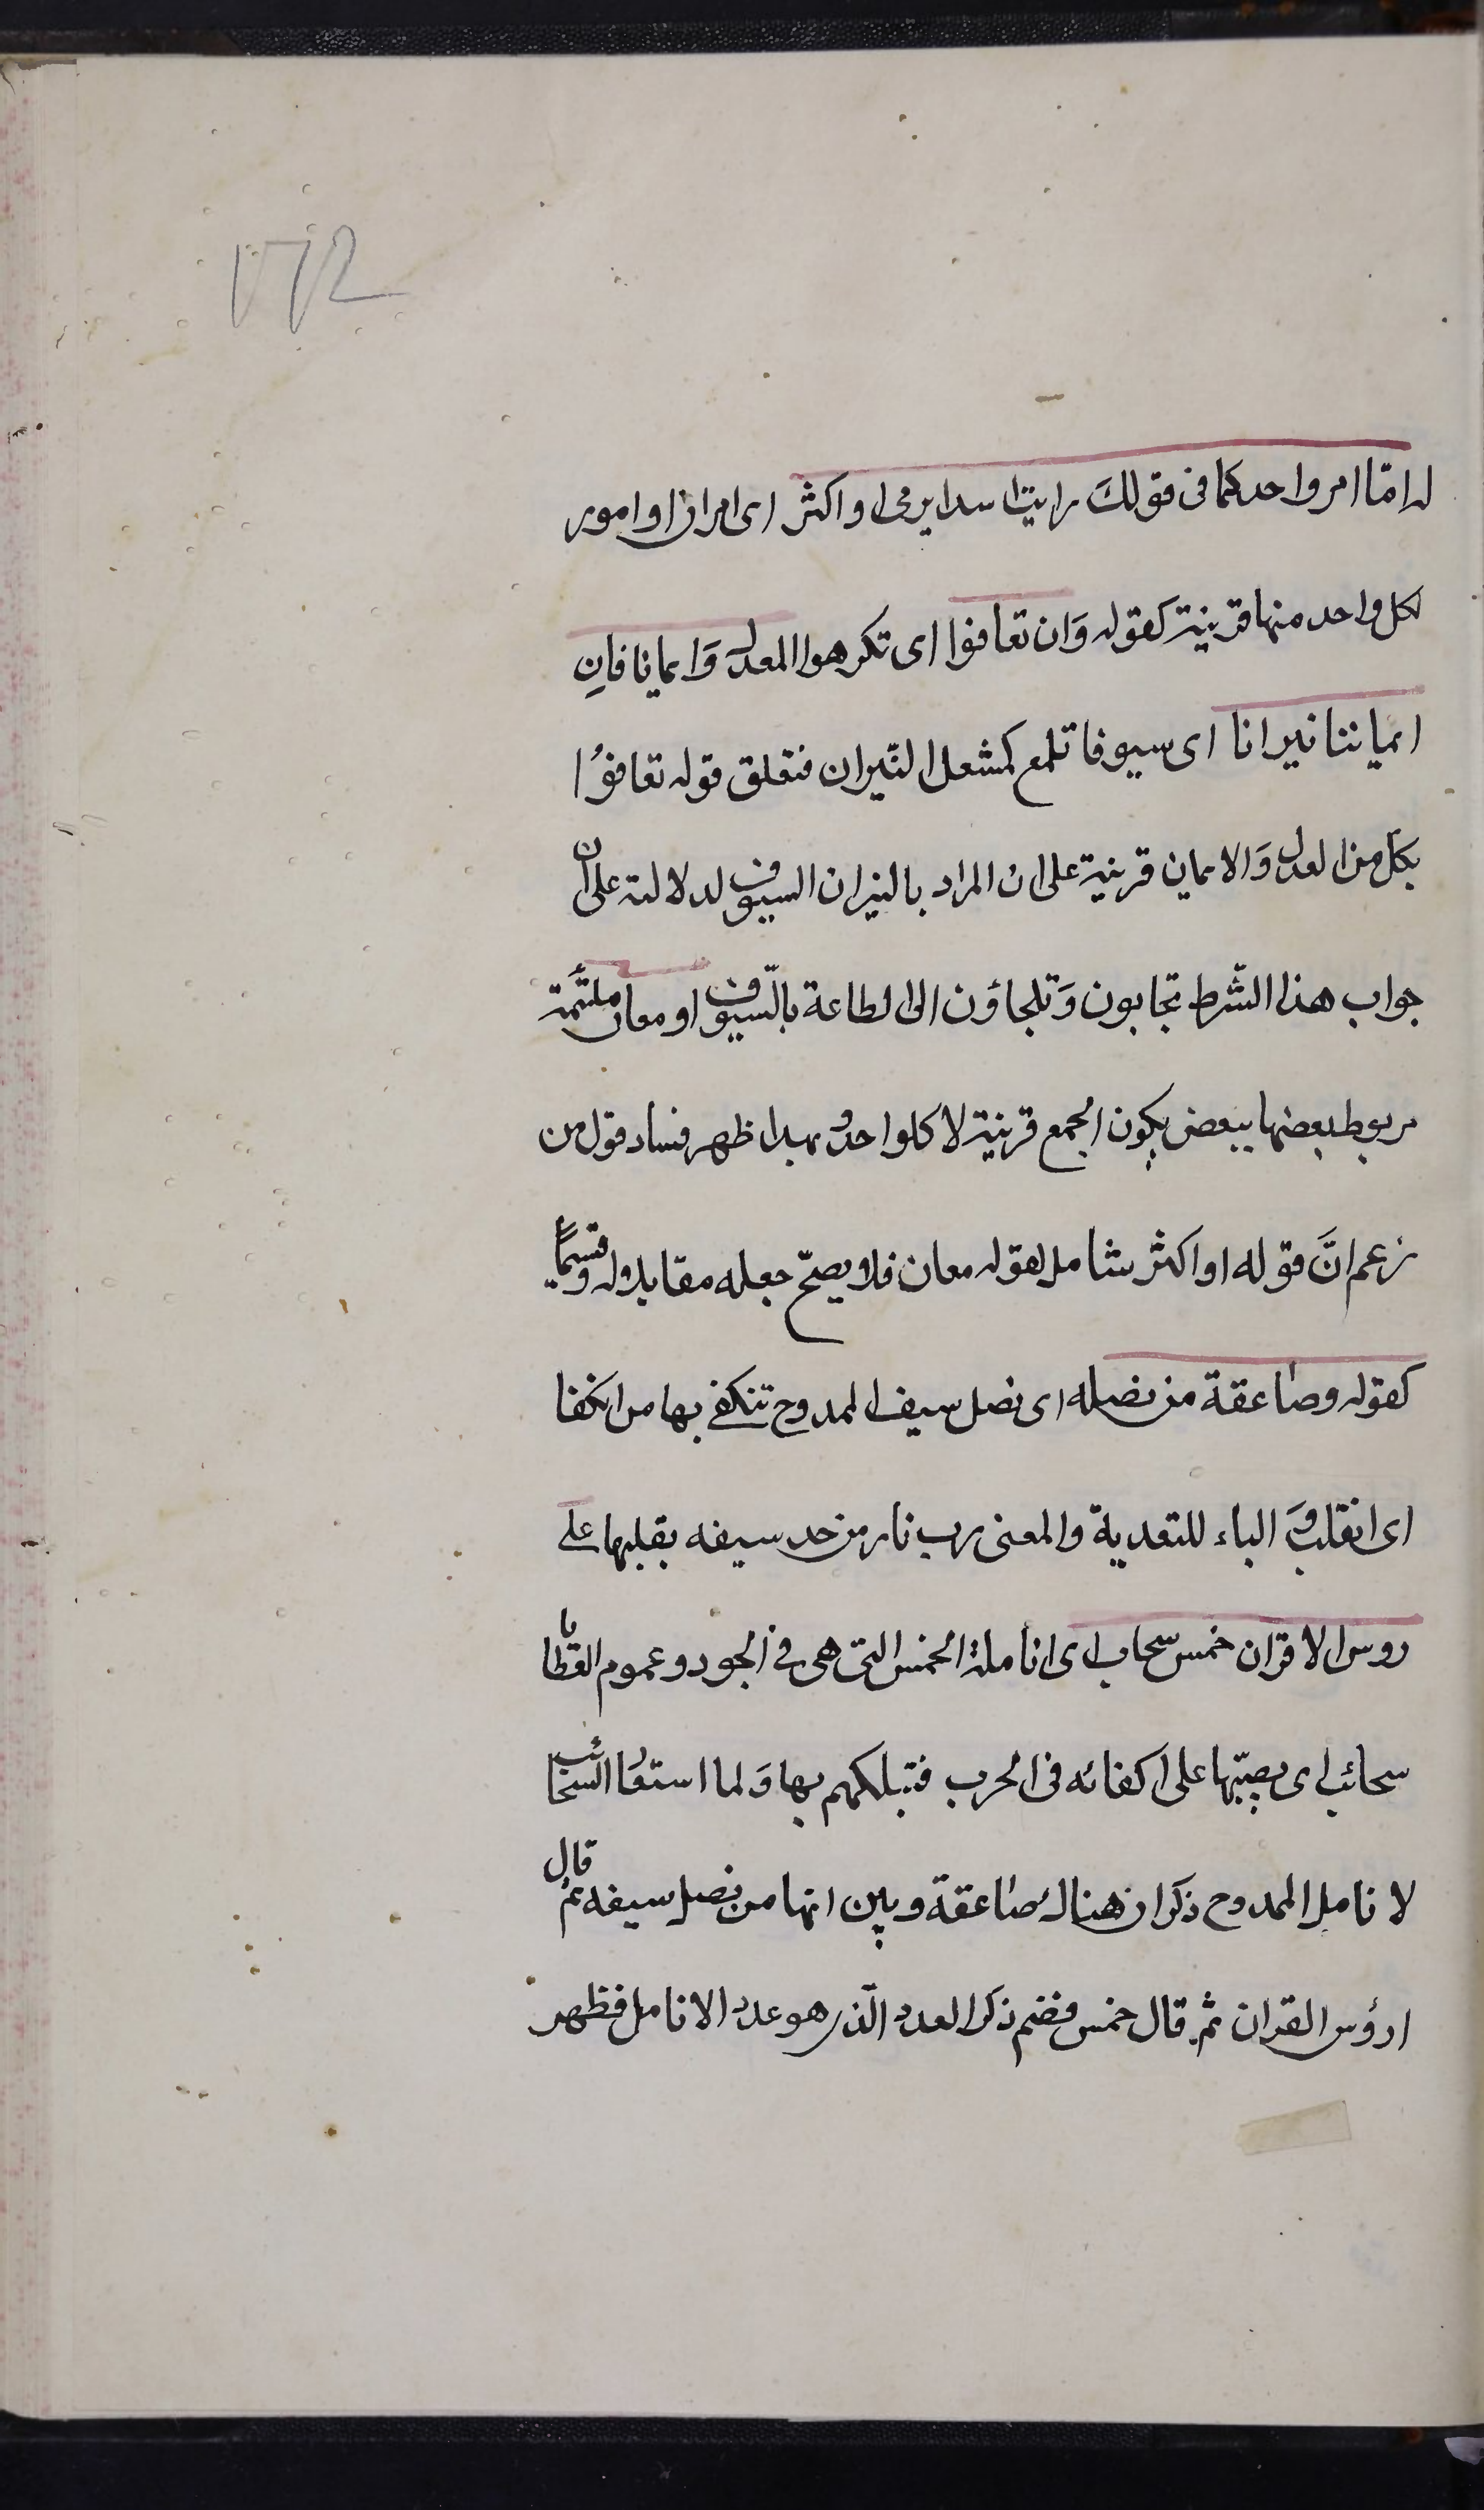 ١٧٢
له امّا امر واحد كما فى قولكَ رايت اسدا يرمى او اكثر اى امران او امور
لكل واحد منها قرينة كقوله وَان تعافوا اى تكرهوا العدل وَايمانا فانِ
ايماننا نيرانا اى سيوفا تلمع كمشعل النّيران فتعلق قوله تعافوُا
بكل من العدل وَالايمان قرينة على ان المراد بالنيران السيوف لدلالته على ان
جواب هذا الشّرط تجابون وَتلجاؤن الى الطاعة بالّسيوف او معان ملتئمة
مربوط بعضها ببعض يكون الجمع قرينة لا كل واحد وبهدا ظهر فساد قول من
زعم انَّ قوله او اكثر شامل لقوله معان فلا يصحّ جعله مقابلا له وقسيمًا
كقوله وصاعقة من نصله اى نصل سيف الممدوح تنكفى بها من انكفا
اى انقلب وَ الباء للتعدية والمعنى رب نار من حد سيفه يقلبها على
روس الاقران خمس سحاب اى انامله الخمس التى هى فى الجود وعموم العطايا
سحائب اى يصبّها على اكفائه فى الحرب فتهلكهم بها وَلما استعار السحائب
لانامل الممدوح ذكر ان هناك صاعقة وبين انها من نصل سيفه ثم قال
ارؤس القران ثم قال خمس فضم ذكر العدد الّذى هو عدد الانامل فظهر